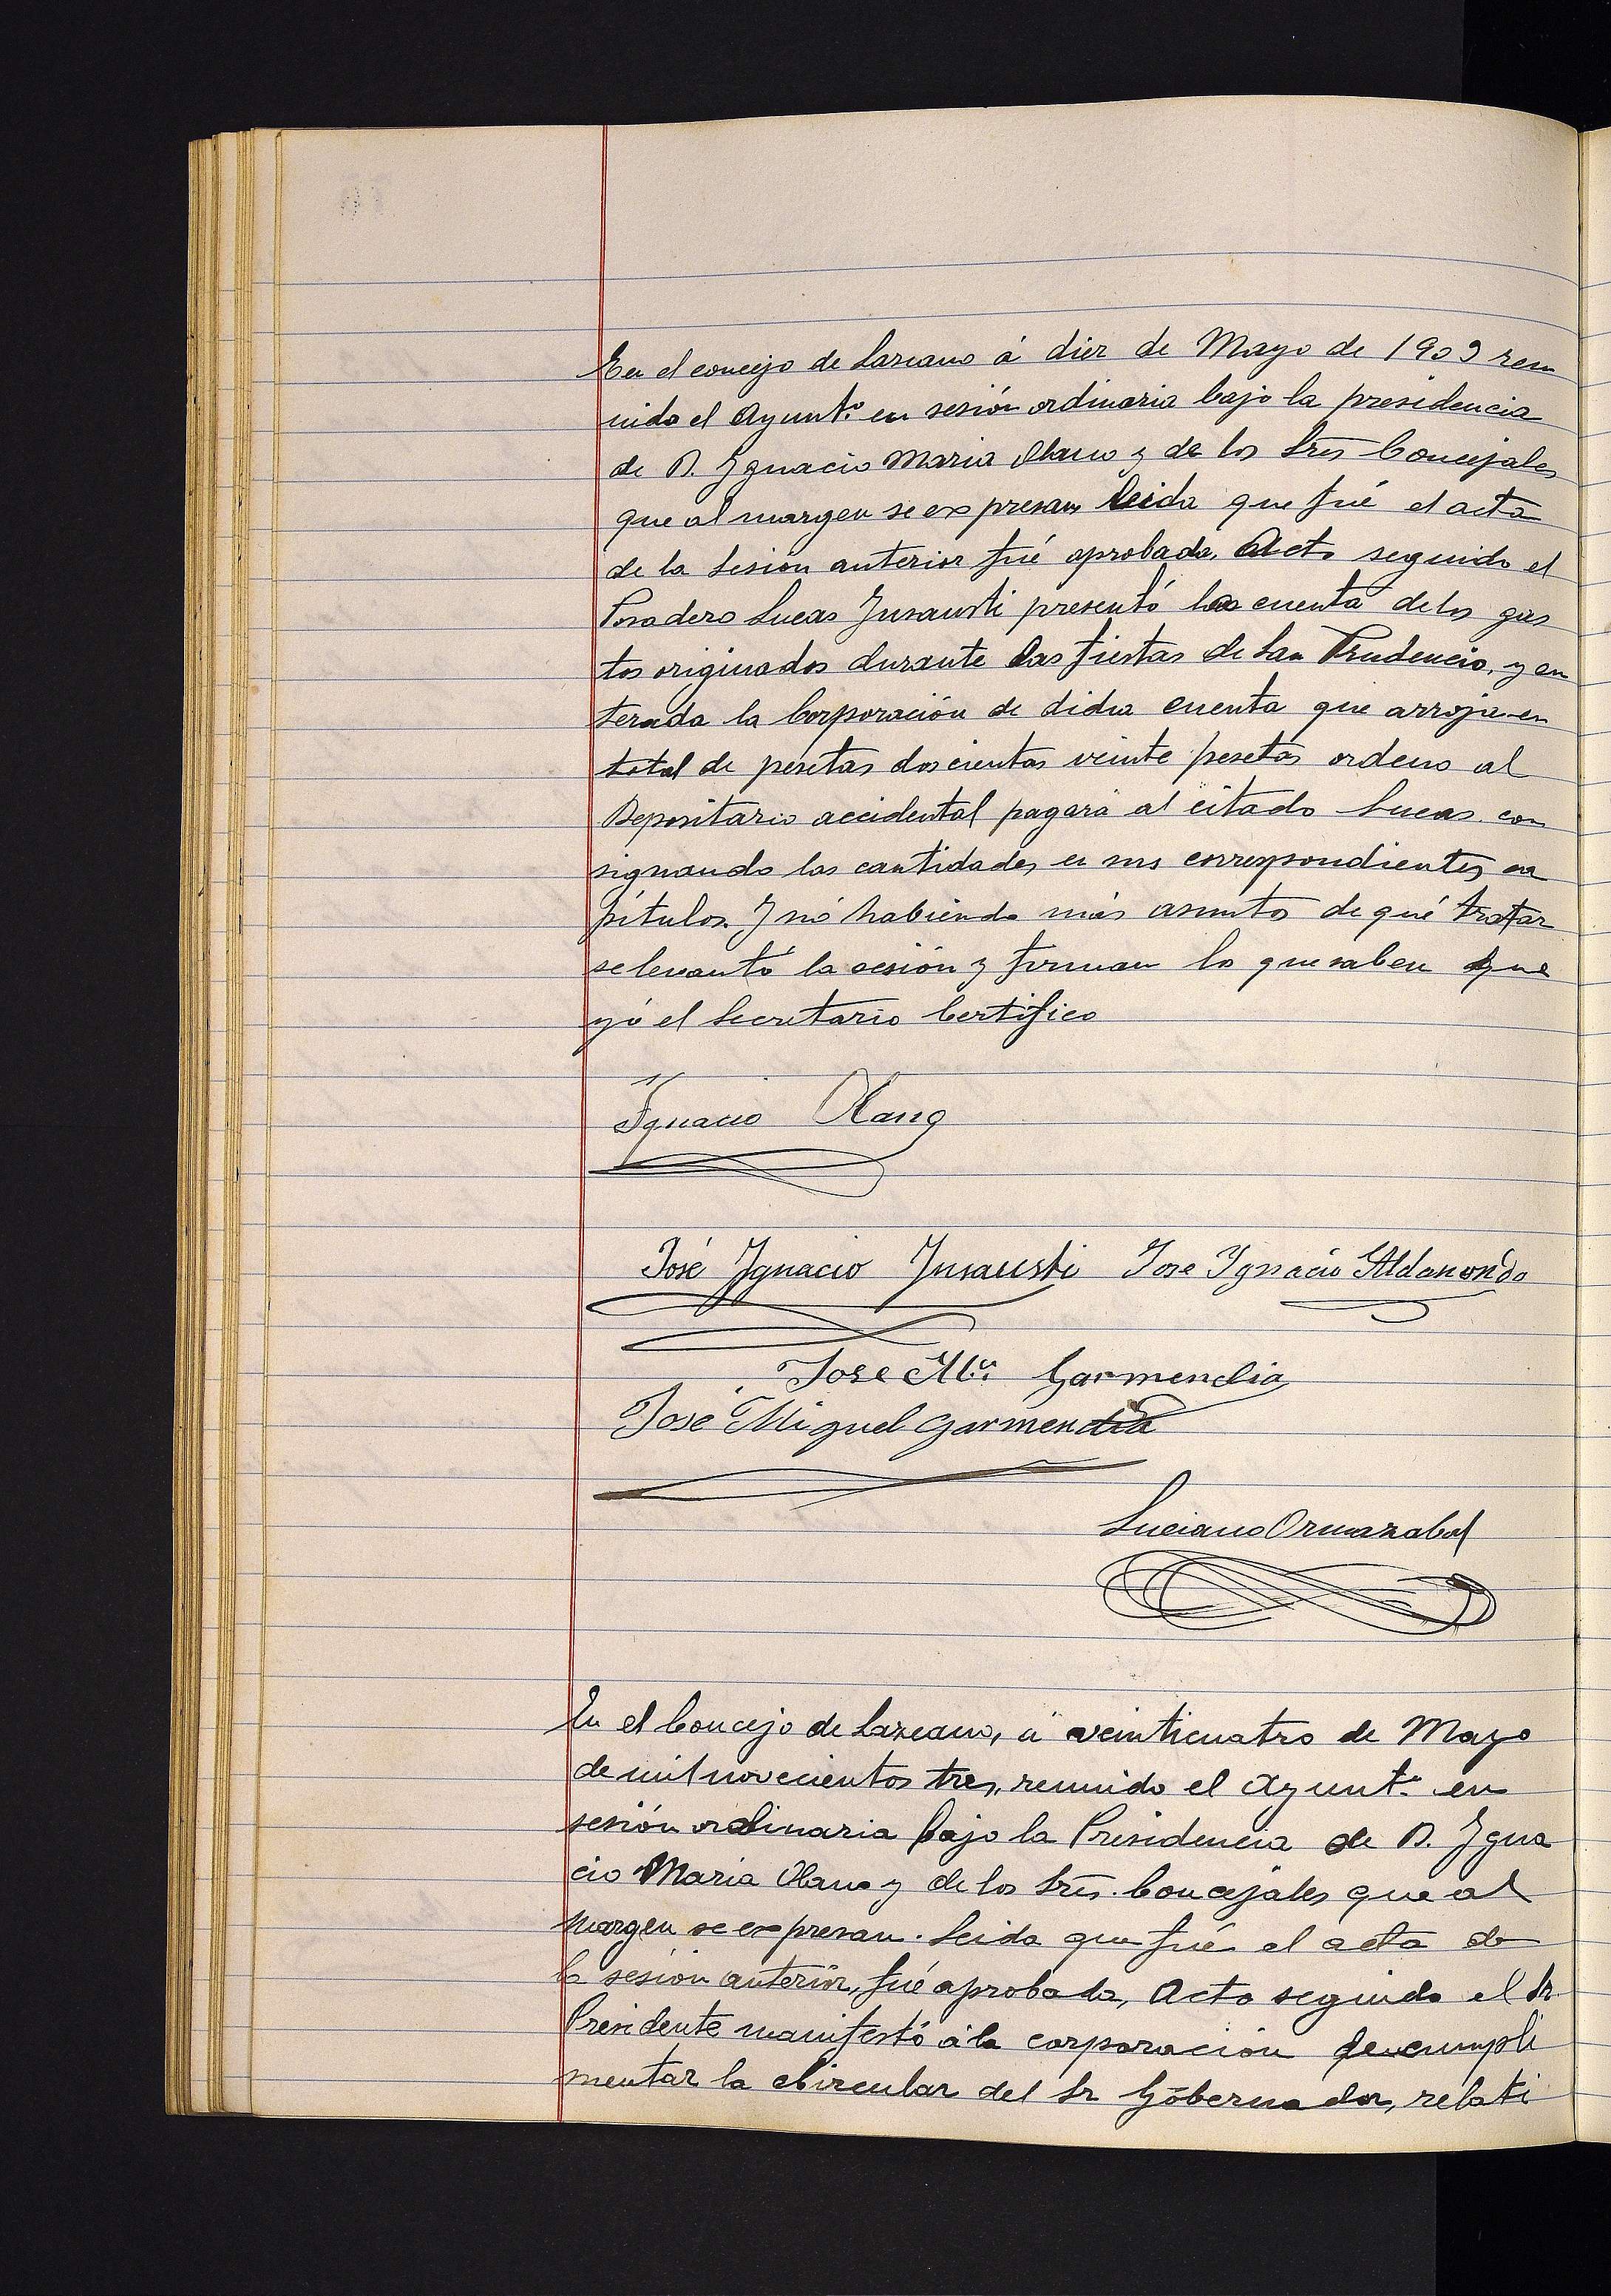 En el concejo de Lazcano á diez de Mayo de 1903 reu
nido el Ayunt.º en sesión ordinaria bajo la presidencia
de D. Ygnacio Maria Olano y de los Sres Concejales
que al margen se expresan leida que fué el acta
de la sesión anterior fué aprobada. Acto seguido el
Posadero Lucas Ynsausti presentó las cuenta de los gas
tos originados durante las fiestas de San Prudencio, y en
terada la Corporación de dicha cuenta que arroja en
total de pesetas doscientas veinte pesetas ordeno al
Depositario accidental pagará al citado Lucas con
signando las cantidades en sus correspondientes ca
pítulos. Y nó habiendo más asunto de qué tratar
se levantó la sesión y firman lo que saben que
yó el Secretario Certifico
Ygnacio Olano
José Ygnacio Ynsausti Jose Ygnacio Aldanondo
Jose Mª. Garmendia
José Miguel Garmendia
Luciano Ormazabal
En el Concejo de Lazcano, á veinticuatro de Mayo
de mil novecientos tres, reunido el Ayunt.º en
sesión ordinaria bajo la Presidencia de D. Ygna
cio Maria Olano y de los Sres. Concejales que al
margen se expresan. Leida que fué el acta de
la sesión anterior, fué aprobada, Acto seguido el Sr.
Presidente manifestó á la corporación cumpli
mentar la Circular del Sr Gobernador, relati